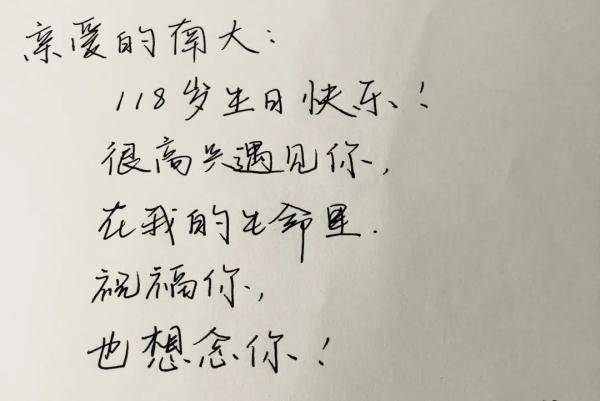 亲爱的南大：
118岁生日快乐！
很高兴遇见你，
在我的生命里.
祝福你，
也想念你！